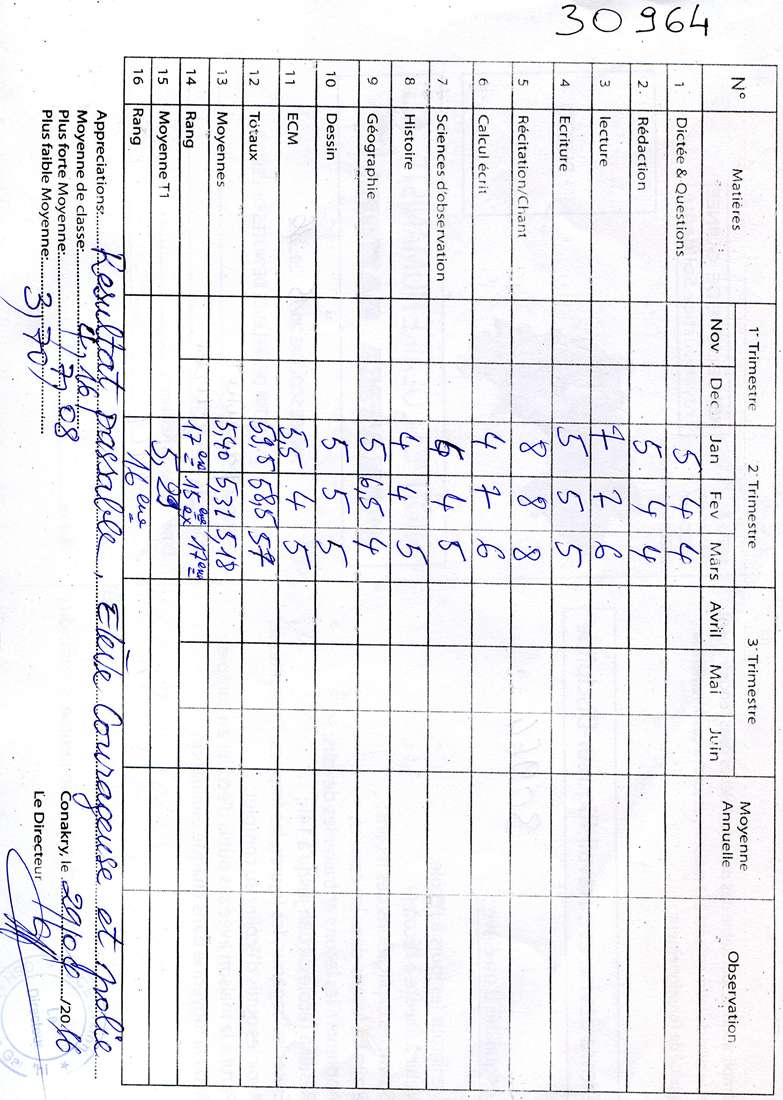 30964
N° Matières 1° Trimestre 2 Trimestre 3° Trimestre Moyenne Annuelle Observation
Nov Dec Jan Fev Mars Avril Mai Juin
1 Dictée & Questions 5 4 4
2 Rédaction 5 4 4
3 lecture 7 7 6
4 Ecriture 5 5 5
5 Récitation/Chant 8 8 8
6 Calcul écrit 4 7 6
7 Sciences d'observation 6 4 5
8 Histoire 4 4 5
9 Géographie 5 6,5 4
10 Dessin 5 5 5
11 ECM 5,5 4 5
12 Totaux 59,5 58,5 57
13 Moyennes 5,40 5,31 5,18
14 Rang 17 eme 15 eme ex 17 eme
15 Moyenne T1 5,29
16 Rang 16 eme
Appreciations: Resultat passable, Elève Courageuse et polie
Moyenne de classe: 4,16
Plus forte Moyenne: 7,08
Plus faible Moyenne: 3,70
Conakry, le 29/06/2016
Le Directeur